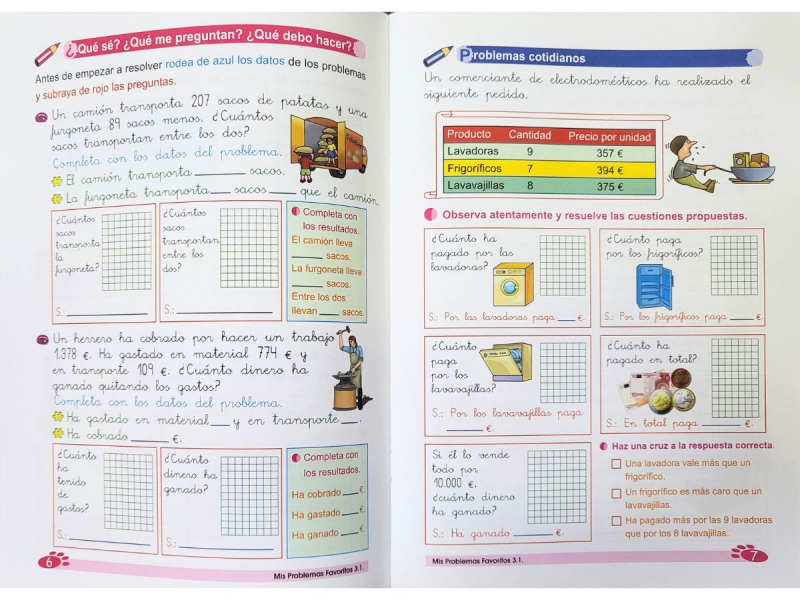 ¿Qué sé? ¿Qué me preguntan? ¿Qué debo hacer?
Antes de empezar a resolver rodea de azul los datos de los problemas
y subraya de rojo las preguntas.
Un camión transporta 207 sacos de patatas y una
furgoneta 89 sacos menos. ¿Cuántos
sacos transportan entre los dos?
Completa con los datos del problema.
El camión transporta ______ sacos.
La furgoneta transporta ____ sacos ____ que el camión.
¿Cuántos
sacos
transporta
la
furgoneta?
S.: ______
¿Cuántos
sacos
transportan
entre los
dos?
S.: ______
Completa con
los resultados.
El camión lleva
____ sacos.
La furgoneta lleva
____ sacos.
Entre los dos
llevan ____ sacos.
Un herrero ha cobrado por hacer un trabajo
1.378 €. Ha gastado en material 774 € y
en transporte 109 €. ¿Cuánto dinero ha
ganado quitando los gastos?
Completa con los datos del problema.
Ha gastado en material ___ y en transporte ___.
Ha cobrado ______ €.
¿Cuánto
ha
tenido
de
gastos?
S.: ______
¿Cuánto
dinero ha
ganado?
S.: ______
Completa con
los resultados.
Ha cobrado ____ €.
Ha gastado ____ €.
Ha ganado ____ €.
6
Mis Problemas Favoritos 3.1.
Problemas cotidianos
Un comerciante de electrodomésticos ha realizado el
siguiente pedido.
Producto Cantidad Precio por unidad
Lavadoras 9 357 €
Frigoríficos 7 394 €
Lavavajillas 8 375 €
Observa atentamente y resuelve las cuestiones propuestas.
¿Cuánto ha
pagado por las
lavadoras?
S.: Por las lavadoras paga ____ €.
¿Cuánto paga
por los frigoríficos?
S.: Por los frigoríficos paga ____ €.
¿Cuánto
paga
por los
lavavajillas?
S.: Por los lavavajillas paga
______ €.
¿Cuánto ha
pagado en total?
S.: En total paga ______ €.
Si él lo vende
todo por
10.000 €,
¿cuánto dinero
ha ganado?
S.: Ha ganado ______ €.
Haz una cruz a la respuesta correcta.
Una lavadora vale más que un
frigorífico.
Un frigorífico es más caro que un
lavavajillas.
Ha pagado más por las 9 lavadoras
que por los 8 lavavajillas.
Mis Problemas Favoritos 3.1.
7